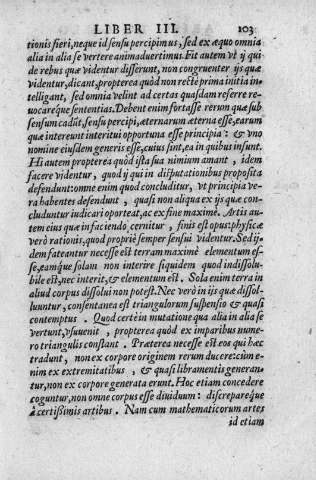 LIBER III. 103
tionis fieri, neque id sensu percipimus, sed ex æquo omnia
alia in alia se vertere animaduertimus. Fit autem vt ij qui
de rebus quæ videntur disserunt, non congruenter ijs quæ
videntur, dicant, propterea quòd non rectè prima initia in-
telligant, sed omnia velint ad certas quasdam referre re-
uocareque sententias. Debent enim fortasse rerum quæ sub
sensum cadūt, sensu percipi, æternarum æterna esse, earum
quæ intereunt interitui opportuna esse principia: & vno
nomine eiusdem generis esse, cuius sint, ea in quibus insunt.
Hi autem propterea quòd ista sua nimium amant, idem
facere videntur, quod ij qui in disputationibus proposita
defendunt: omne enim quod concluditur, vt principia ve-
ra habentes defendunt, quasi non aliqua ex ijs quæ con-
cluduntur iudicari oporteat, ac ex fine maximè. Artis au-
tem eius quæ in faciendo cernitur, finis est opus: physicæ
verò rationis, quod propriè semper sensui videtur. Sed ij-
dem fateantur necesse est terram maximè elementum es-
se, eamque solam non interire siquidem quod indissolu-
bile est, nec interit, & elementum est. Sola enim terra in
aliud corpus dissolui non potest. Nec verò in ijs quæ dissol-
uuntur, consentanea est triangulorum suspensio & quasi
contemptus. Quod certè in mutatione qua alia in alia se
vertunt, vsuuenit, propterea quòd ex imparibus nume-
ro triangulis constant. Præterea necesse est eos qui hæc
tradunt, non ex corpore originem rerum ducere: cùm e-
nim ex extremitatibus, & quasi libramentis generan-
tur, non ex corpore generata erunt. Hoc etiam concedere
coguntur, non omne corpus esse diuiduum: discrepareque
à certissimis artibus. Nam cum mathematicorum artes
id etiam